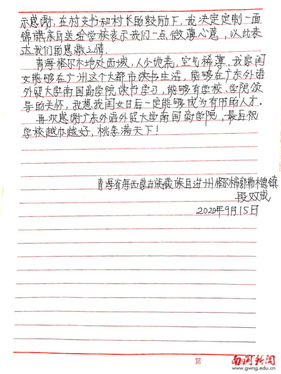 示感谢，在村支书和村长的鼓励下，我决定定制一面
锦旗亲自送给学校表示我们一点微薄心意，以此表
达我们的感激之情。
青海格尔木地处西域，人少地荒，空气稀薄，我家闺
女能够在广州这个大都市读书生活，能够在广东外语
外贸大学南国商学院读书学习，能够有学校、学院领
导的关怀，我想我闺女日后一定能够成为有用的人才。
再次感谢广东外语外贸大学南国商学院，最后祝
学校越办越好，桃李满天下！
青海省海西蒙古族藏族自治州格尔木郭勒木德镇
段双成
2020年9月15日
南国新闻
www.gwng.edu.cn